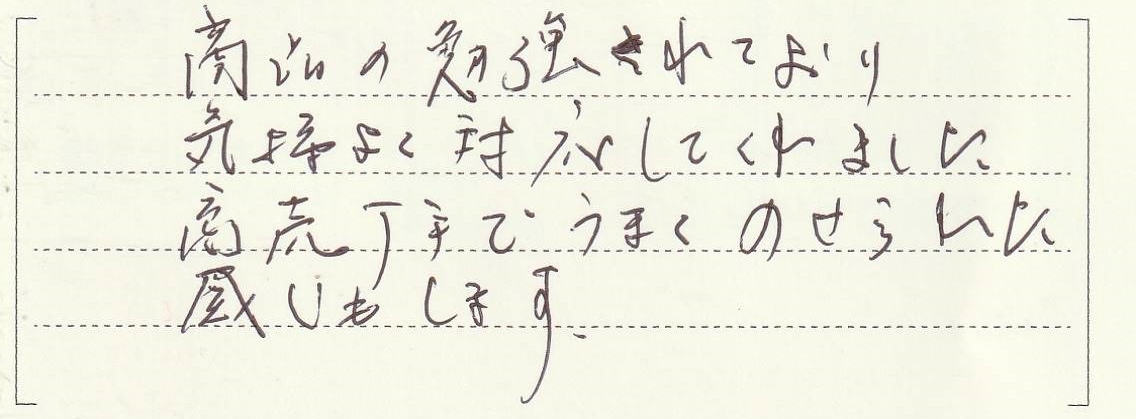 商品の勉強されており
気持よく対応してくれました
商売上手でうまくのせられた
感じもします。